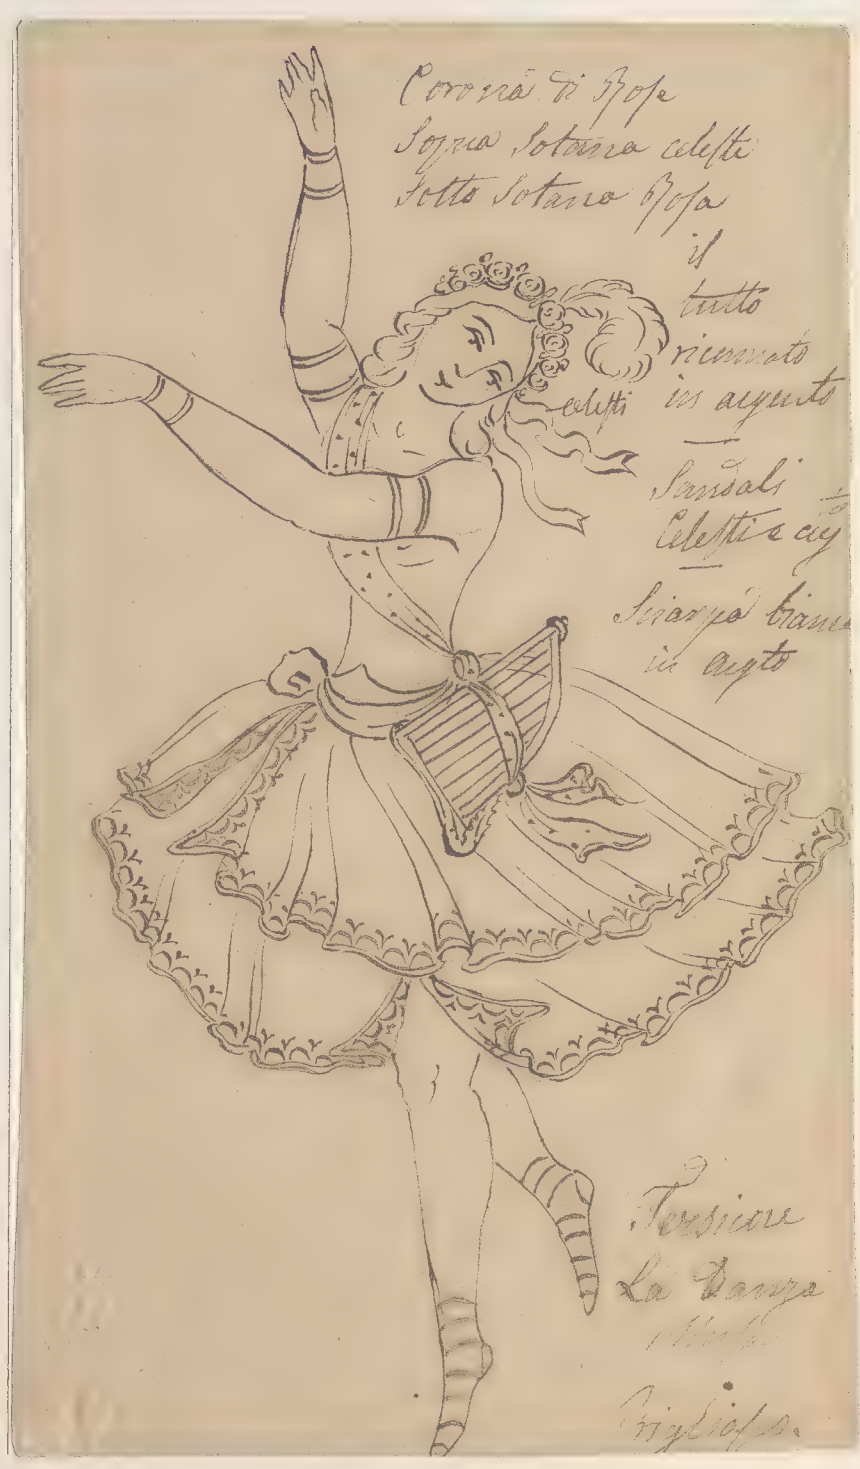 Corona di Rose
Sopra Sotana celeste
Sotto Sotana Rosa
il
tutto
ricamato
in argento
celesti
Sandali
Celesti e arg
Sciarpa bianc
in argto
Tersicore
La Danza
Musa